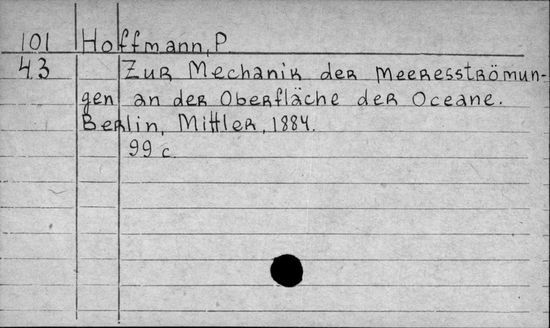 101 Hoffmann, P
43 Zur Mechanik der Meeresströmun-
gen an der Oberfläche der Oceane.
Berlin, Mittler, 1884.
99 c.